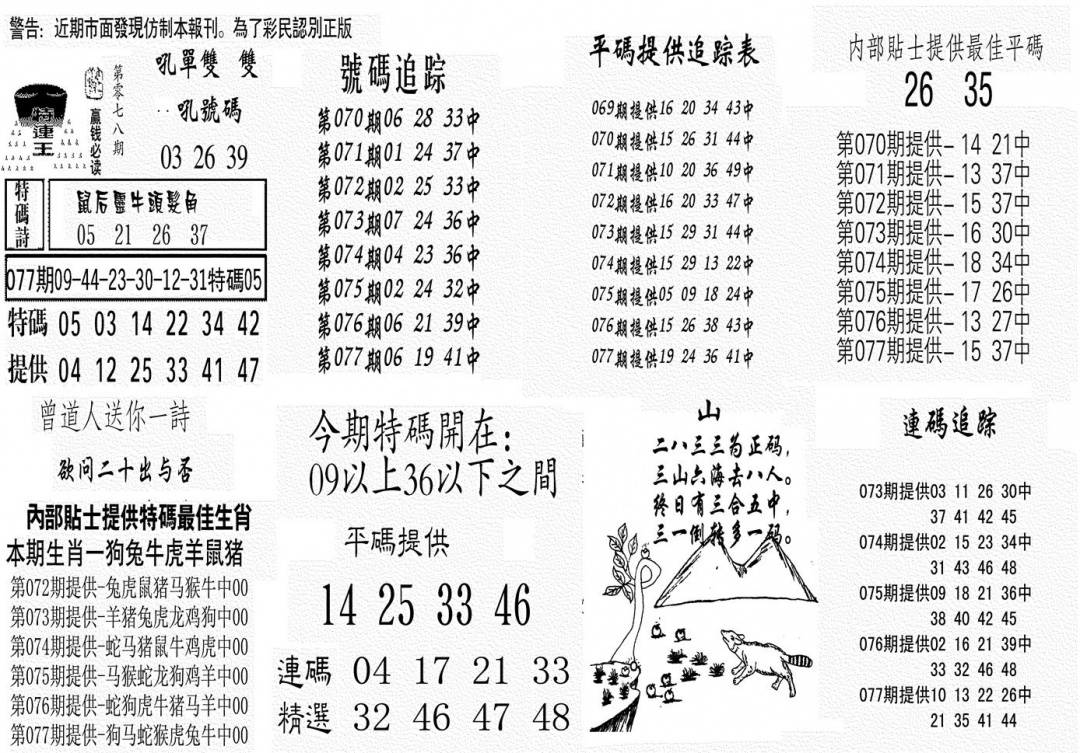 警告: 近期市面發現仿制本報刊。為了彩民認別正版
特連王
贏钱必读
第零七八期
吼單雙 雙
吼號碼
03 26 39
特碼詩
鼠后靈牛頭髮角
05 21 26 37
077期09-44-23-30-12-31特碼05
特碼 05 03 14 22 34 42
提供 04 12 25 33 41 47
號碼追踪
第070期06 28 33中
第071期01 24 37中
第072期02 25 33中
第073期07 24 36中
第074期04 23 36中
第075期02 24 32中
第076期06 21 39中
第077期06 19 41中
平碼提供追踪表
069期提供16 20 34 43中
070期提供15 26 31 44中
071期提供10 20 36 49中
072期提供16 20 33 47中
073期提供15 29 31 44中
074期提供15 29 13 22中
075期提供05 09 18 24中
076期提供15 26 38 43中
077期提供19 24 36 41中
内部貼士提供最佳平碼
26 35
第070期提供- 14 21中
第071期提供- 13 37中
第072期提供- 15 37中
第073期提供- 16 30中
第074期提供- 18 34中
第075期提供- 17 26中
第076期提供- 13 27中
第077期提供- 15 37中
曾道人送你一詩
欲问二十出与否
內部貼士提供特碼最佳生肖
本期生肖一狗兔牛虎羊鼠猪
第072期提供-兔虎鼠猪马猴牛中00
第073期提供-羊猪兔虎龙鸡狗中00
第074期提供-蛇马猪鼠牛鸡虎中00
第075期提供-马猴蛇龙狗鸡羊中00
第076期提供-蛇狗虎牛猪马羊中00
第077期提供-狗马蛇猴虎兔牛中00
今期特碼開在:
09以上36以下之間
平碼提供
14 25 33 46
連碼 04 17 21 33
精選 32 46 47 48
山
二八三三为正码,
三山六海去八人。
终日有三合五中,
三一倒转多一码。
連碼追踪
073期提供03 11 26 30中
37 41 42 45
074期提供02 15 23 34中
31 43 46 48
075期提供09 18 21 36中
38 40 42 45
076期提供02 16 21 39中
33 32 46 48
077期提供10 13 22 26中
21 35 41 44